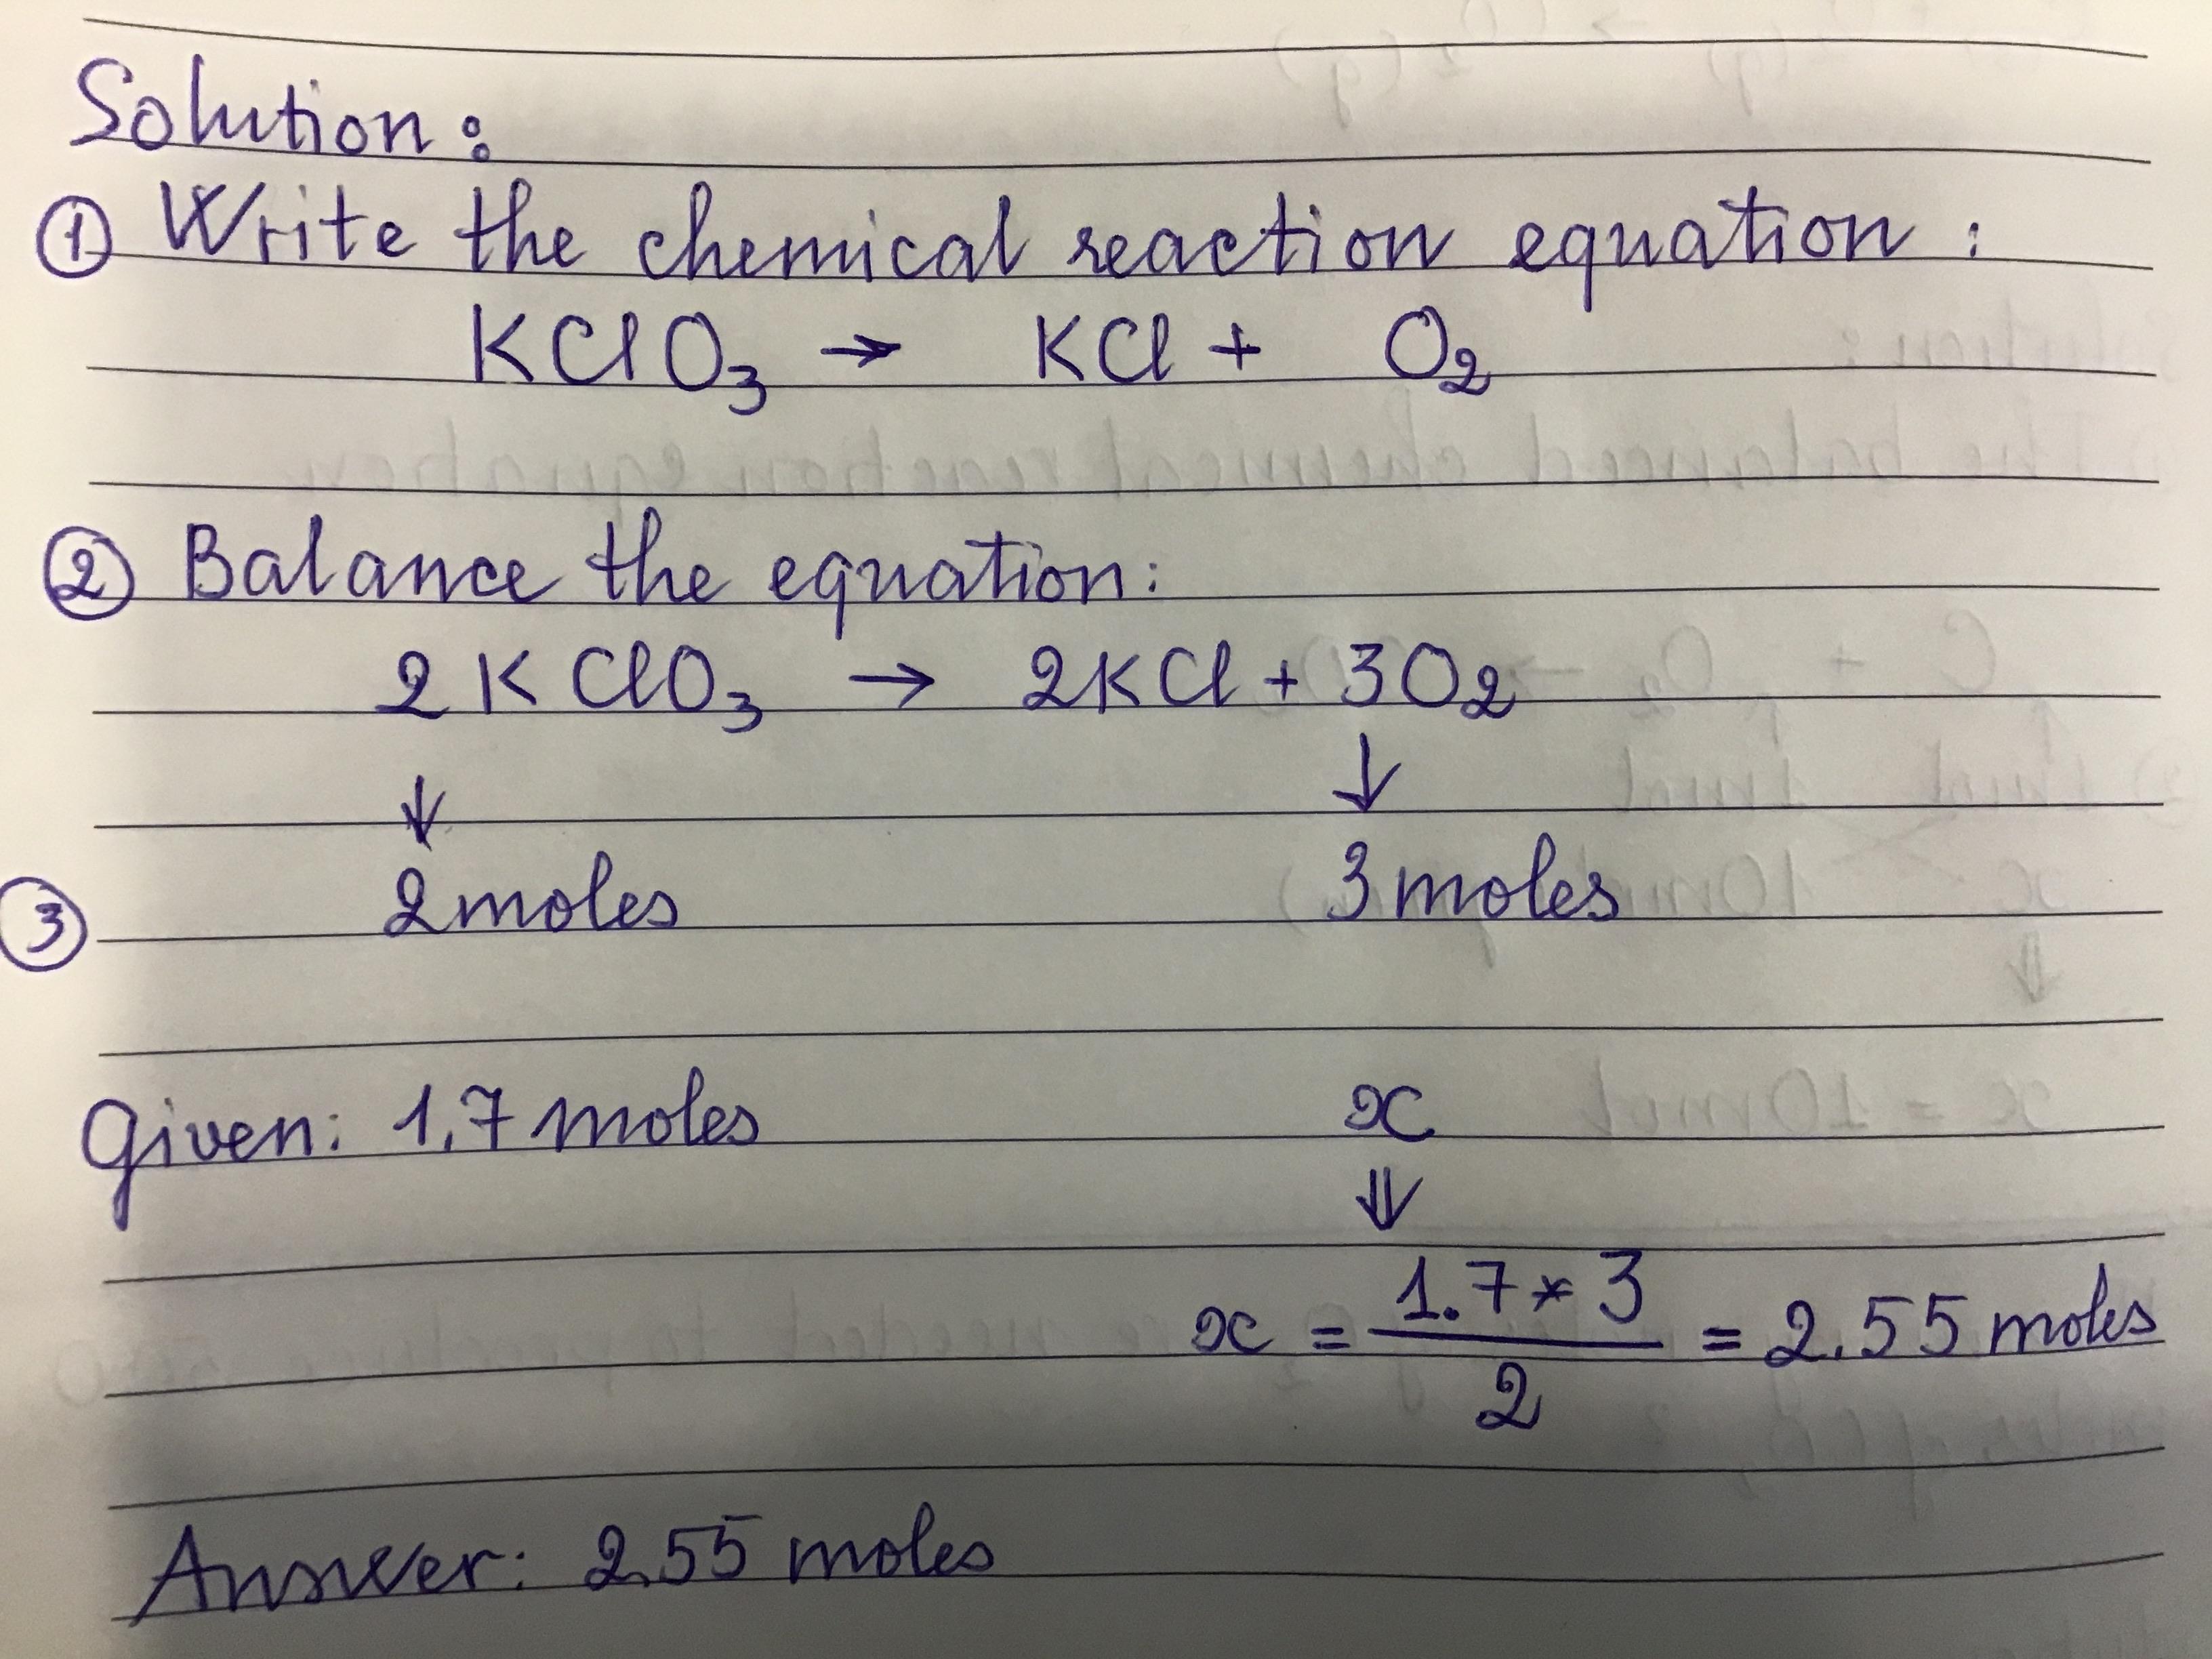 Solution:
① Write the chemical reaction equation:
KClO₃ → KCl + O₂
② Balance the equation:
2KClO₃ → 2KCl + 3O₂
↓ ↓
③ 2moles 3moles
Given: 1.7 moles x
⇓
x = (1.7 * 3)/2 = 2.55 moles
Answer: 2.55 moles